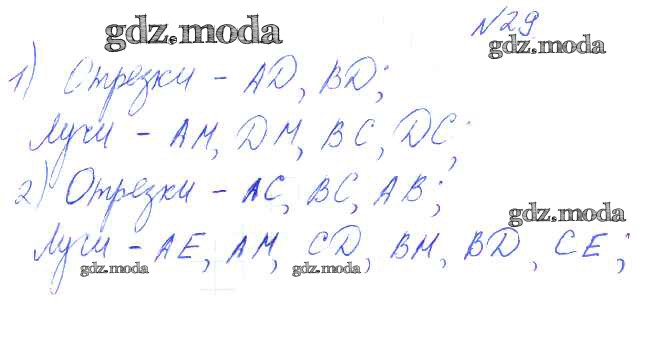 gdz.moda
№29
gdz.moda
1) Отрезки - AD, BD;
Лучи - AM, DM, BC, DC;
2) Отрезки - AC, BC, AB;
gdz.moda
Лучи - AE, AM, CD, BM, BD, CE;
gdz.moda gdz.moda